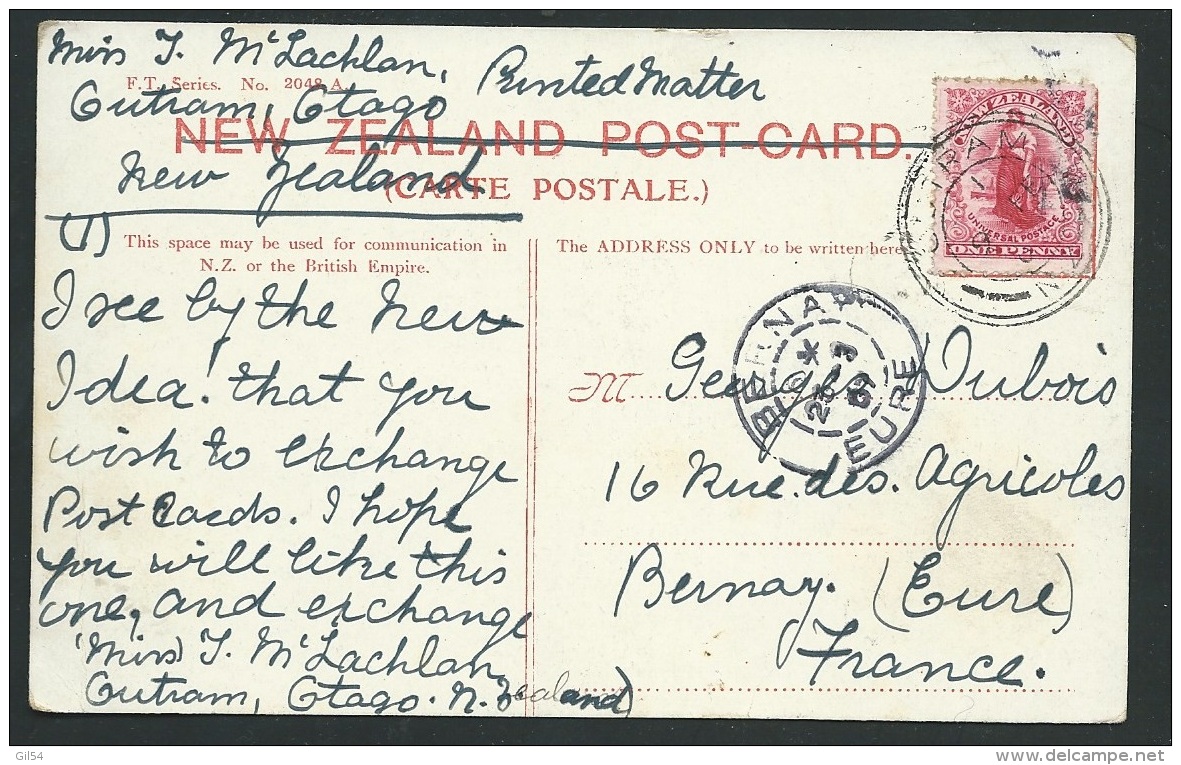 Miss J. McLachlan, Printed Matter
F.T. Series. No. 2048 A.
Outram, Otago
NEW ZEALAND POST-CARD.
New Zealand
(CARTE POSTALE.)
(1)
This space may be used for communication in
N.Z. or the British Empire.
I see by the New
Idea! that you
wish to exchange
Post Cards. I hope
you will like this
one, and exchange
(Miss) J. McLachlan,
Outram, Otago. N. Zealand)
The ADDRESS ONLY to be written here
NEW ZEALAND
UNIVERSAL POSTAGE
ONE PENNY
OUTRAM
N.Z
BERNAY
23 -3
09
EURE
M Dubois
16 Rue. des. Agricoles
Bernay. (Eure)
France.
Gil54
delcampe.net